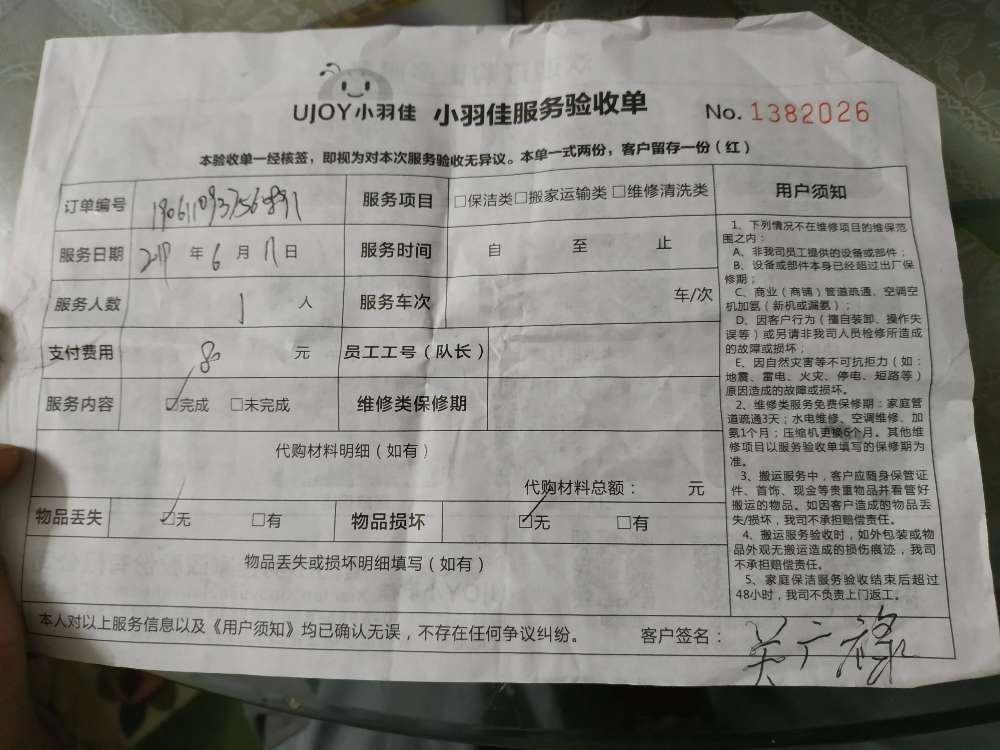 UJOY小羽佳 小羽佳服务验收单 No. 1382026
本验收单一经核签，即视为对本次服务验收无异议。本单一式两份，客户留存一份（红）
订单编号 服务项目 □保洁类□搬家运输类□维修清洗类
服务日期 年 6 月 11 日 服务时间 自 至 止
服务人数 1 人 服务车次 车/次
支付费用 80 元 员工工号（队长）
服务内容 ☑完成 □未完成 维修类保修期
代购材料明细（如有）
代购材料总额： 元
物品丢失 ☑无 □有 物品损坏 ☑无 □有
物品丢失或损坏明细填写（如有）
本人对以上服务信息以及《用户须知》均已确认无误，不存在任何争议纠纷。 客户签名： 关广禄
用户须知
1、下列情况不在维修项目的维保范
围之内：
A、非我司员工提供的设备或部件；
B、设备或部件本身已经超过出厂保
修期；
C、商业（商铺）管道疏通、空调空
机加氨（新机或漏氨）；
D、因客户行为（擅自装卸、操作失
误等）或另请非我司人员检修所造成
的故障或损坏；
E、因自然灾害等不可抗拒力（如：
地震、雷电、火灾、停电、短路等）
原因造成的故障或损坏。
2、维修类服务免费保修期：家庭管
道疏通3天；水电维修、空调维修、加
氨1个月；压缩机更换6个月。其他维
修项目以服务验收单填写的保修期为
准。
3、搬运服务中，客户应随身保管证
件、首饰、现金等贵重物品并看管好
搬运的物品。如因客户造成的物品丢
失/损坏，我司不承担赔偿责任。
4、搬运服务验收时，如外包装或物
品外观无搬运造成的损伤痕迹，我司
不承担赔偿责任。
5、家庭保洁服务验收结束后超过
48小时，我司不负责上门返工。